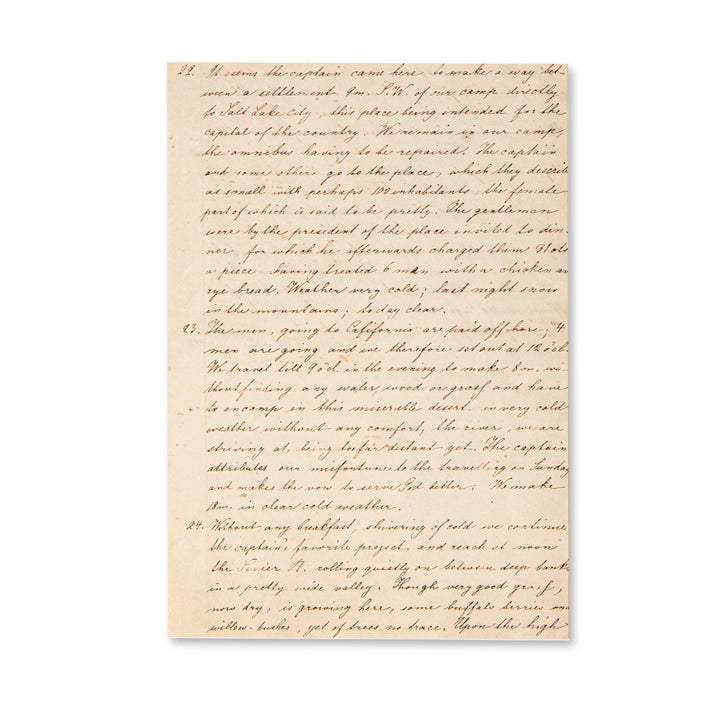 22. It seems the captain came here to make a way bet-
ween a settlement 9m. S.W. of our camp directly
to Salt Lake City, this place being intended for the
capital of the country. We remain in our camp,
the omnibus having to be repaired. The captain
and some others go to the place, which they describe
as small with perhaps 100 inhabitants, the female
part of which is said to be pretty. The gentlemen
were by the president of the place invited to din-
ner, for which he afterwards charged them 31 cts
a piece having treated 6 men with a chicken an
rye bread. Weather very cold; last night snow
in the mountains; to day clear.
23. The men, going to California are paid off here; 4
men are going and we therefore set out at 12 o'cl.
We travel till 9 o'cl. in the evening to make 8 m. wi-
thout finding any water, wood or grass and have
to encamp in this miserable desert in very cold
weather without any comfort, the river, we are
striving at, being too far distant yet. The captain
attributes our misfortune to the travelling on Sunday
and makes the vow to serve God better; We make
18m. in clear cold weather.
24. Without any breakfast, shivering of cold we continue
the captain's favorite project and reach at noon
the Sevier R. rolling quietly on between deep banks
in a pretty wide valley. Though very good grass,
now dry, is growing here, some buffalo berries and
willow-bushes, yet of trees no trace. Upon the high